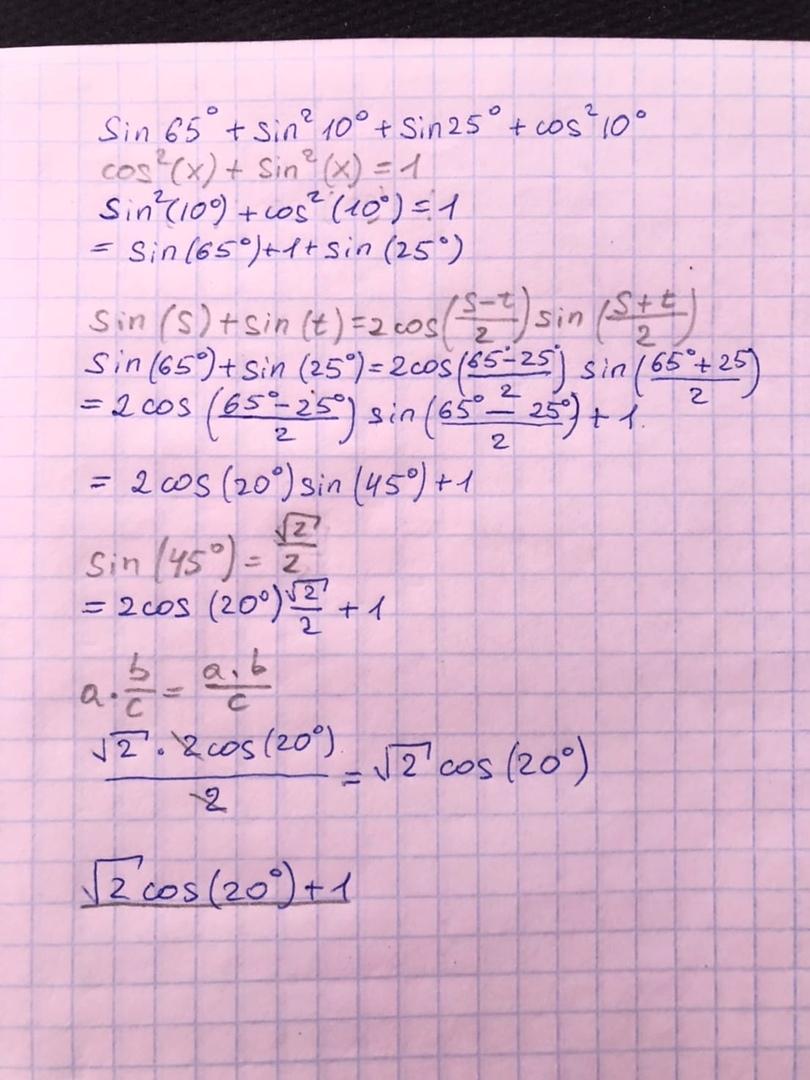 Sin 65° + sin² 10° + Sin 25° + cos² 10°
cos²(x) + Sin²(x) = 1
Sin²(10°) + cos²(10°) = 1
= Sin(65°)+1+sin (25°)
Sin (S)+sin (t)=2cos((S-t)/2) sin ((S+t)/2)
Sin(65°)+Sin (25°)=2cos((65°-25°)/2) sin((65°+25)/2)
= 2 cos ((65°-25°)/2) sin((65° - 25°)/2) + 1.
= 2 cos (20°) sin (45°) + 1
Sin (45°) = √2/2
= 2cos (20°) √2/2 + 1
a · b/c = (a · b)/c
(√2 · 2cos(20°))/2 = √2 cos (20°)
√2 cos(20°) + 1